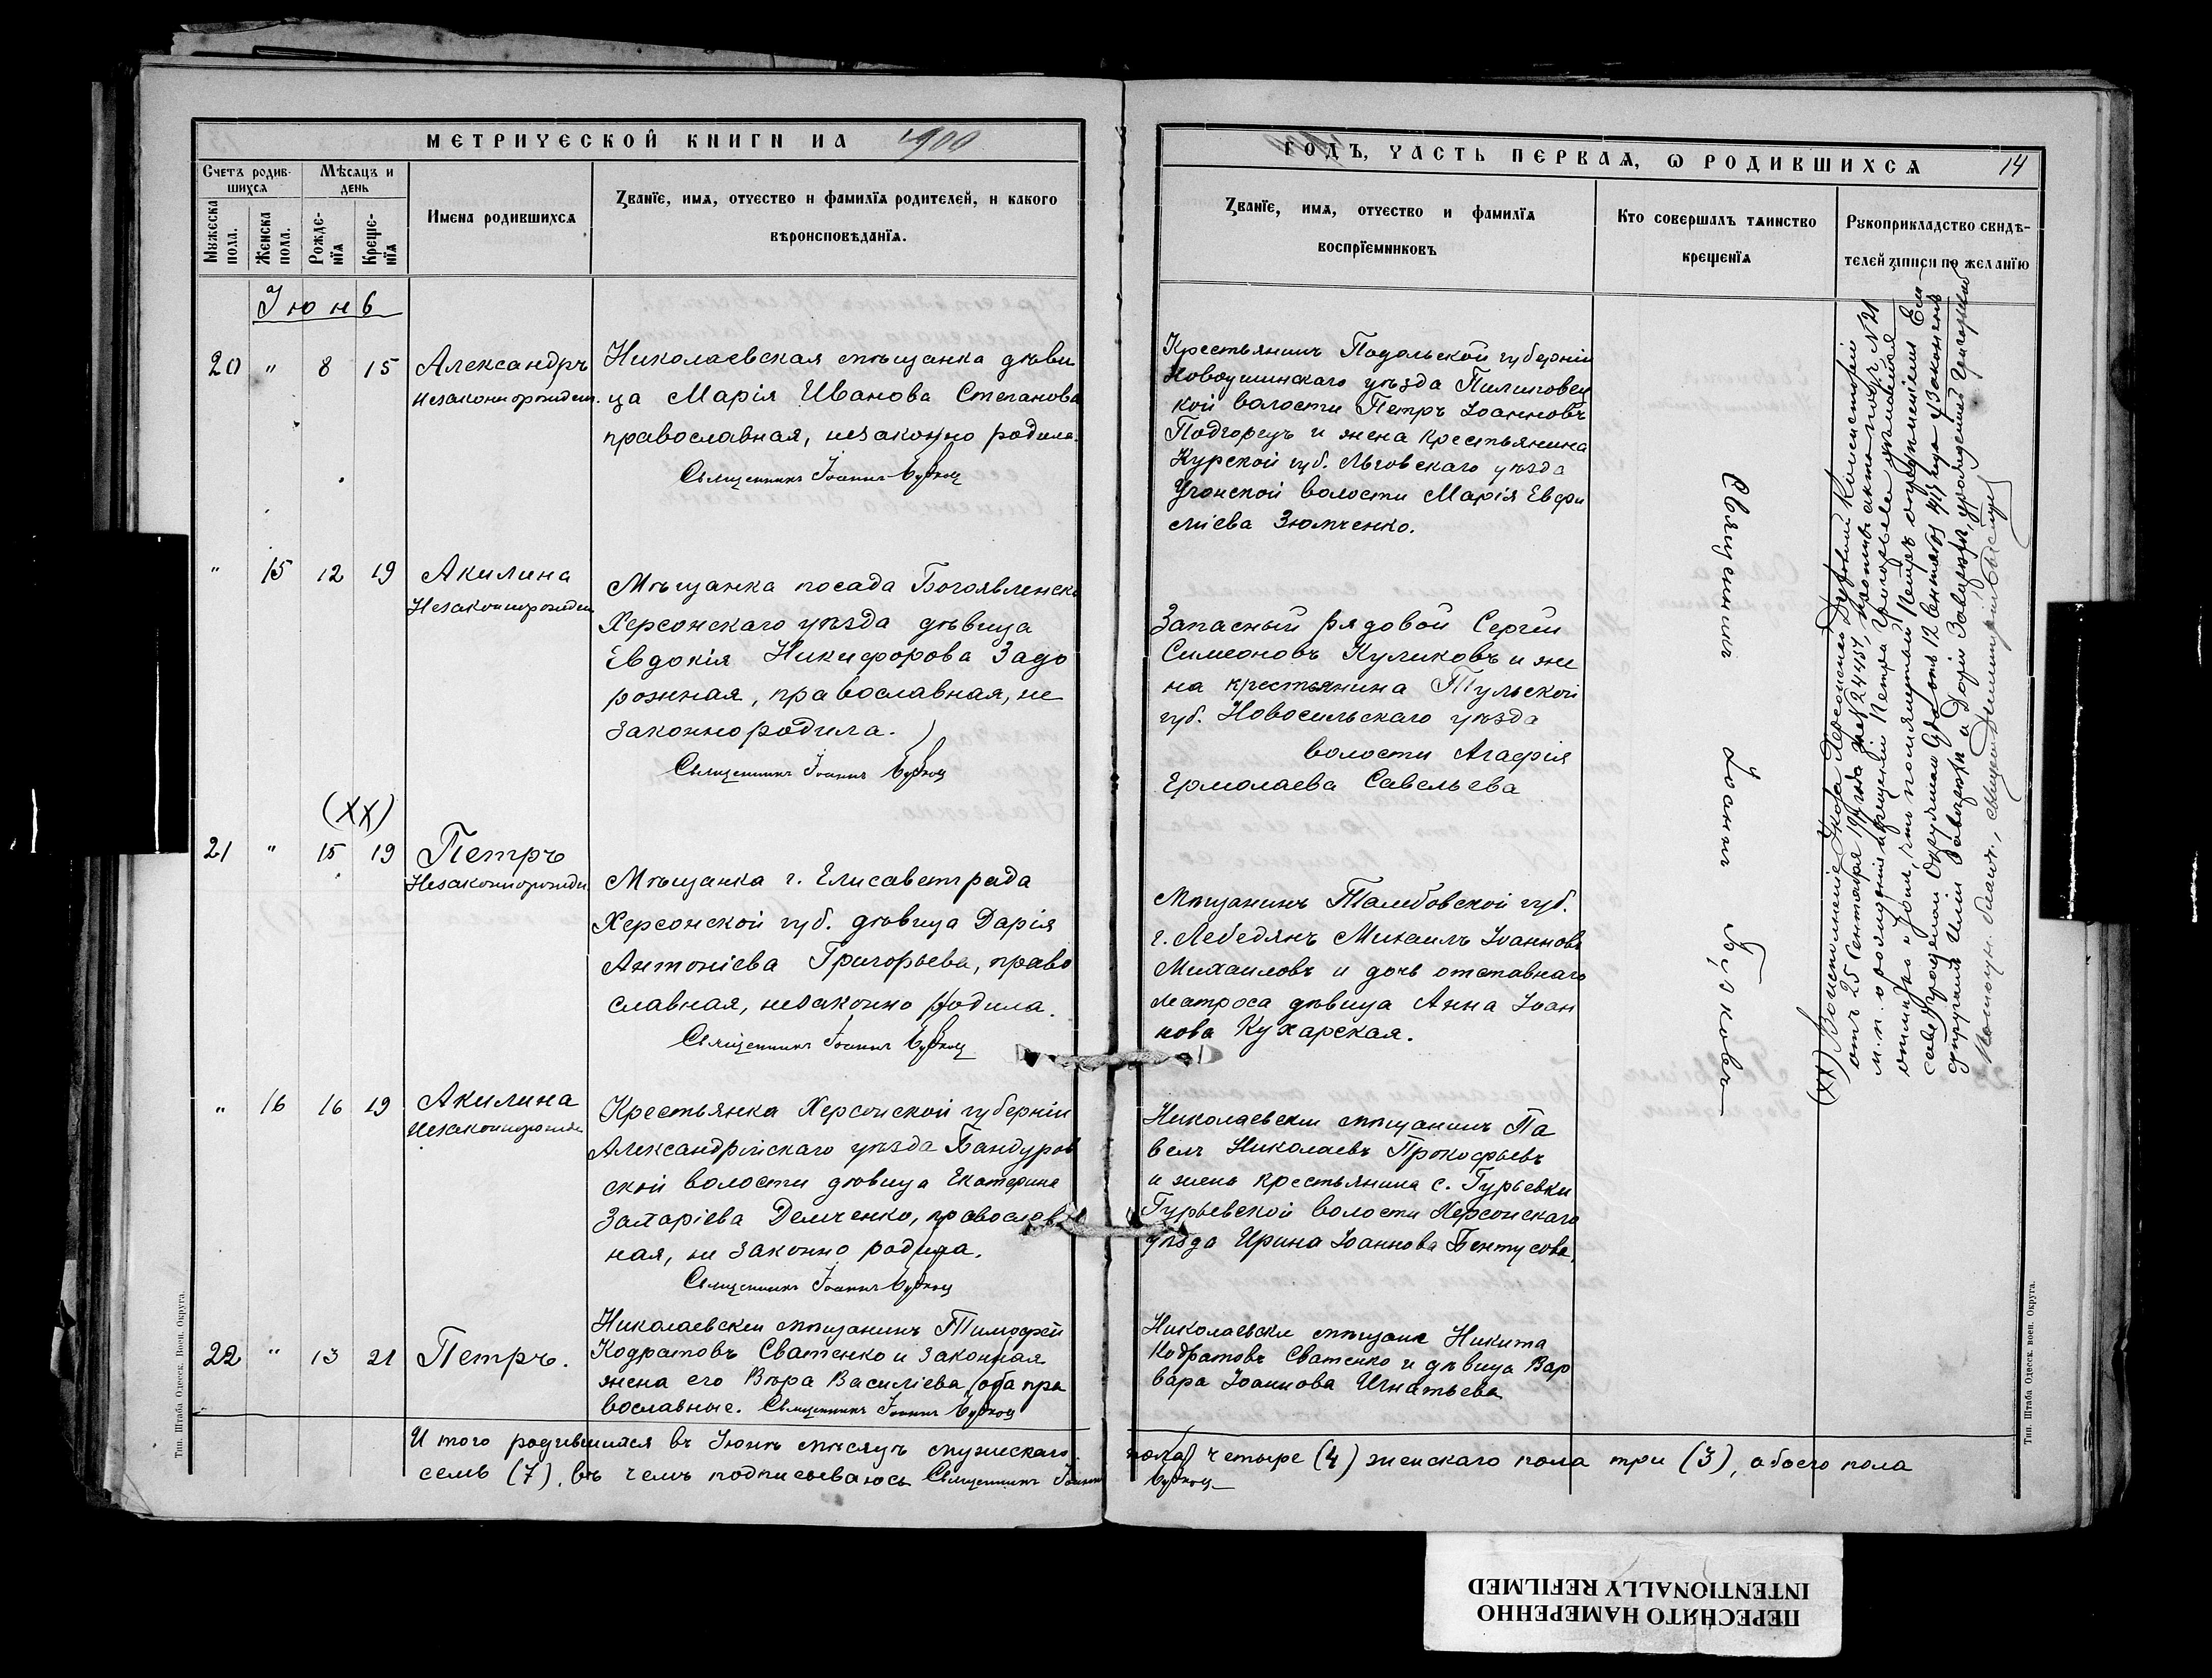 МЕТРИЧЕСКОЙ КНИГИ НА 1900
Счетъ родившихся
Мѣсяцъ и день
Мужеска пола.
Женска пола.
Рожденія
Крещенія
Имена родившихся
Званіе, имя, отчество и фамилія родителей, и какого
вѣроисповѣданія.
Іюнь
20 " 8 15
Александръ
незаконнорожден.
Николаевская мѣщанка дѣви
ца Марія Иванова Степанова
православная, незаконно родила.
Священникъ Іоаннъ
" 15 12 19
Акилина
Незаконнорожден
Мѣщанка посада Богоявленска
Херсонскаго уѣзда дѣвица
Евдокія Никифорова Задо
рожная, православная, не
законно родила.
Священникъ Іоаннъ
(XX)
21 " 15 19
Петръ
Незаконнорожден
Мѣщанка г. Елисаветграда
Херсонской губ. дѣвица Дарія
Антоніева Григорьева, право
славная, незаконно родила.
Священникъ Іоаннъ
" 16 16 19
Акилина
Незаконнорожден
Крестьянка Херсонской губерніи
Александрійскаго уѣзда Бандуров
ской волости дѣвица Екатерина
Захаріева Демченко, православ
ная, не законно родила.
Священникъ Іоаннъ
22 " 13 21
Петръ.
Николаевскій мѣщанинъ Тимофей
Кодратовъ Сватенко и законная
жена его Вѣра Василіева, оба пра
вославные. Священникъ Іоаннъ
Итого родившихся въ Іюнѣ мѣсяцѣ мужескаго
семь (7), въ чемъ подписываюсь Священникъ Іоаннъ
Тип. Штаба Одесск. Воен. Округа.
ГОДЪ, ЧАСТЬ ПЕРВАЯ, О РОДИВШИХСЯ 14
Званіе, имя, отчество и фамилія
воспріемниковъ
Кто совершалъ таинство
крещенія
Рукоприкладство свидѣ-
телей записи по желанію
Крестьянинъ Подольской губерніи
Новоушинскаго уѣзда Пилиповец
кой волости Петръ Іоанновъ
Подгорецъ и жена крестьянина
Курской губ. Льговскаго уѣзда
Угонской волости Марія Евфи
міева Зюмченко.
Запасный рядовой Сергій
Симеоновъ Куликовъ и же
на крестьянина Тульской
губ. Новосильскаго уѣзда
волости Агафія
Ермолаева Савельева
Мѣщанинъ Тамбовской губ.
г. Лебедянь Михаилъ Іоанновъ
Михаиловъ и дочь отставнаго
матроса дѣвица Анна Іоан
нова Кухарская.
Николаевскій мѣщанинъ Па
велъ Николаевъ Прокофьевъ
и жена крестьянина с. Гурьевки
Гурьевской волости Херсонскаго
уѣзда Ирина Іоаннова
Николаевскій мѣщанинъ Никита
Кодратовъ Сватенко и дѣвица Вар
вара Іоаннова Игнатьева
Священникъ Іоаннъ
(XX) Во исполненіе Указа Херсонской Духовной Консисторіи
отъ 25 Сентября за № 24457, противъ акта подъ № 21
м. п. о рожденіи и крещеніи Петра Григорьева
что помянутый Петръ опредѣленіемъ Ели
саветградскаго Окружнаго Суда отъ 12
супругами и Даріи
священникъ Димитрій
пола четыре (4) женскаго пола три (3), обоего пола
Тип. Штаба Одесск. воен. Округа.
ПЕРЕСНЯТО НАМЕРЕННО
INTENTIONALLY REFILMED